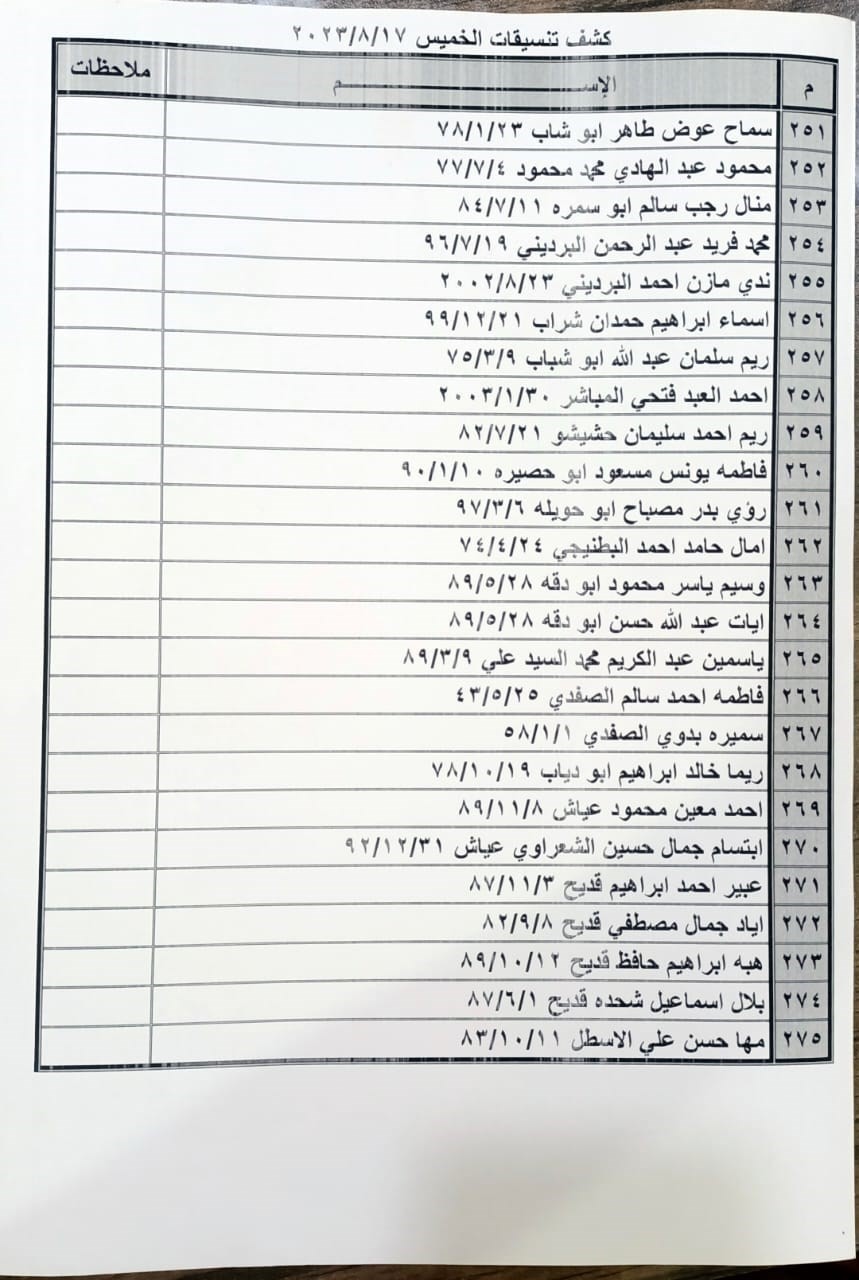 كشف تنسيقات الخميس ٢٠٢٣/٨/١٧
م الإســــــــم ملاحظات
٢٥١ سماح عوض طاهر ابو شاب ٧٨/١/٢٣
٢٥٢ محمود عبد الهادي محمد محمود ٧٧/٧/٤
٢٥٣ منال رجب سالم ابو سمره ٨٤/٧/١١
٢٥٤ محمد فريد عبد الرحمن البرديني ٩٦/٧/١٩
٢٥٥ ندي مازن احمد البرديني ٢٠٠٢/٨/٢٣
٢٥٦ اسماء ابراهيم حمدان شراب ٩٩/١٢/٢١
٢٥٧ ريم سلمان عبد الله ابو شباب ٧٥/٣/٩
٢٥٨ احمد العبد فتحي المباشر ٢٠٠٣/١/٣٠
٢٥٩ ريم احمد سليمان حشيشو ٨٢/٧/٢١
٢٦٠ فاطمه يونس مسعود ابو حصيره ٩٠/١/١٠
٢٦١ رؤي بدر مصباح ابو حويله ٩٧/٣/٦
٢٦٢ امال حامد احمد البطنيجي ٧٤/٤/٢٤
٢٦٣ وسيم ياسر محمود ابو دقه ٨٩/٥/٢٨
٢٦٤ ايات عبد الله حسن ابو دقه ٨٩/٥/٢٨
٢٦٥ ياسمين عبد الكريم محمد السيد علي ٨٩/٣/٩
٢٦٦ فاطمه احمد سالم الصفدي ٤٣/٥/٢٥
٢٦٧ سميره بدوي الصفدي ٥٨/١/١
٢٦٨ ريما خالد ابراهيم ابو دياب ٧٨/١٠/١٩
٢٦٩ احمد معين محمود عياش ٨٩/١١/٨
٢٧٠ ابتسام جمال حسين الشعراوي عياش ٩٢/١٢/٣١
٢٧١ عبير احمد ابراهيم قديح ٨٧/١١/٣
٢٧٢ اياد جمال مصطفي قديح ٨٢/٩/٨
٢٧٣ هبه ابراهيم حافظ قديح ٨٩/١٠/١٢
٢٧٤ بلال اسماعيل شحده قديح ٨٧/٦/١
٢٧٥ مها حسن علي الاسطل ٨٣/١٠/١١